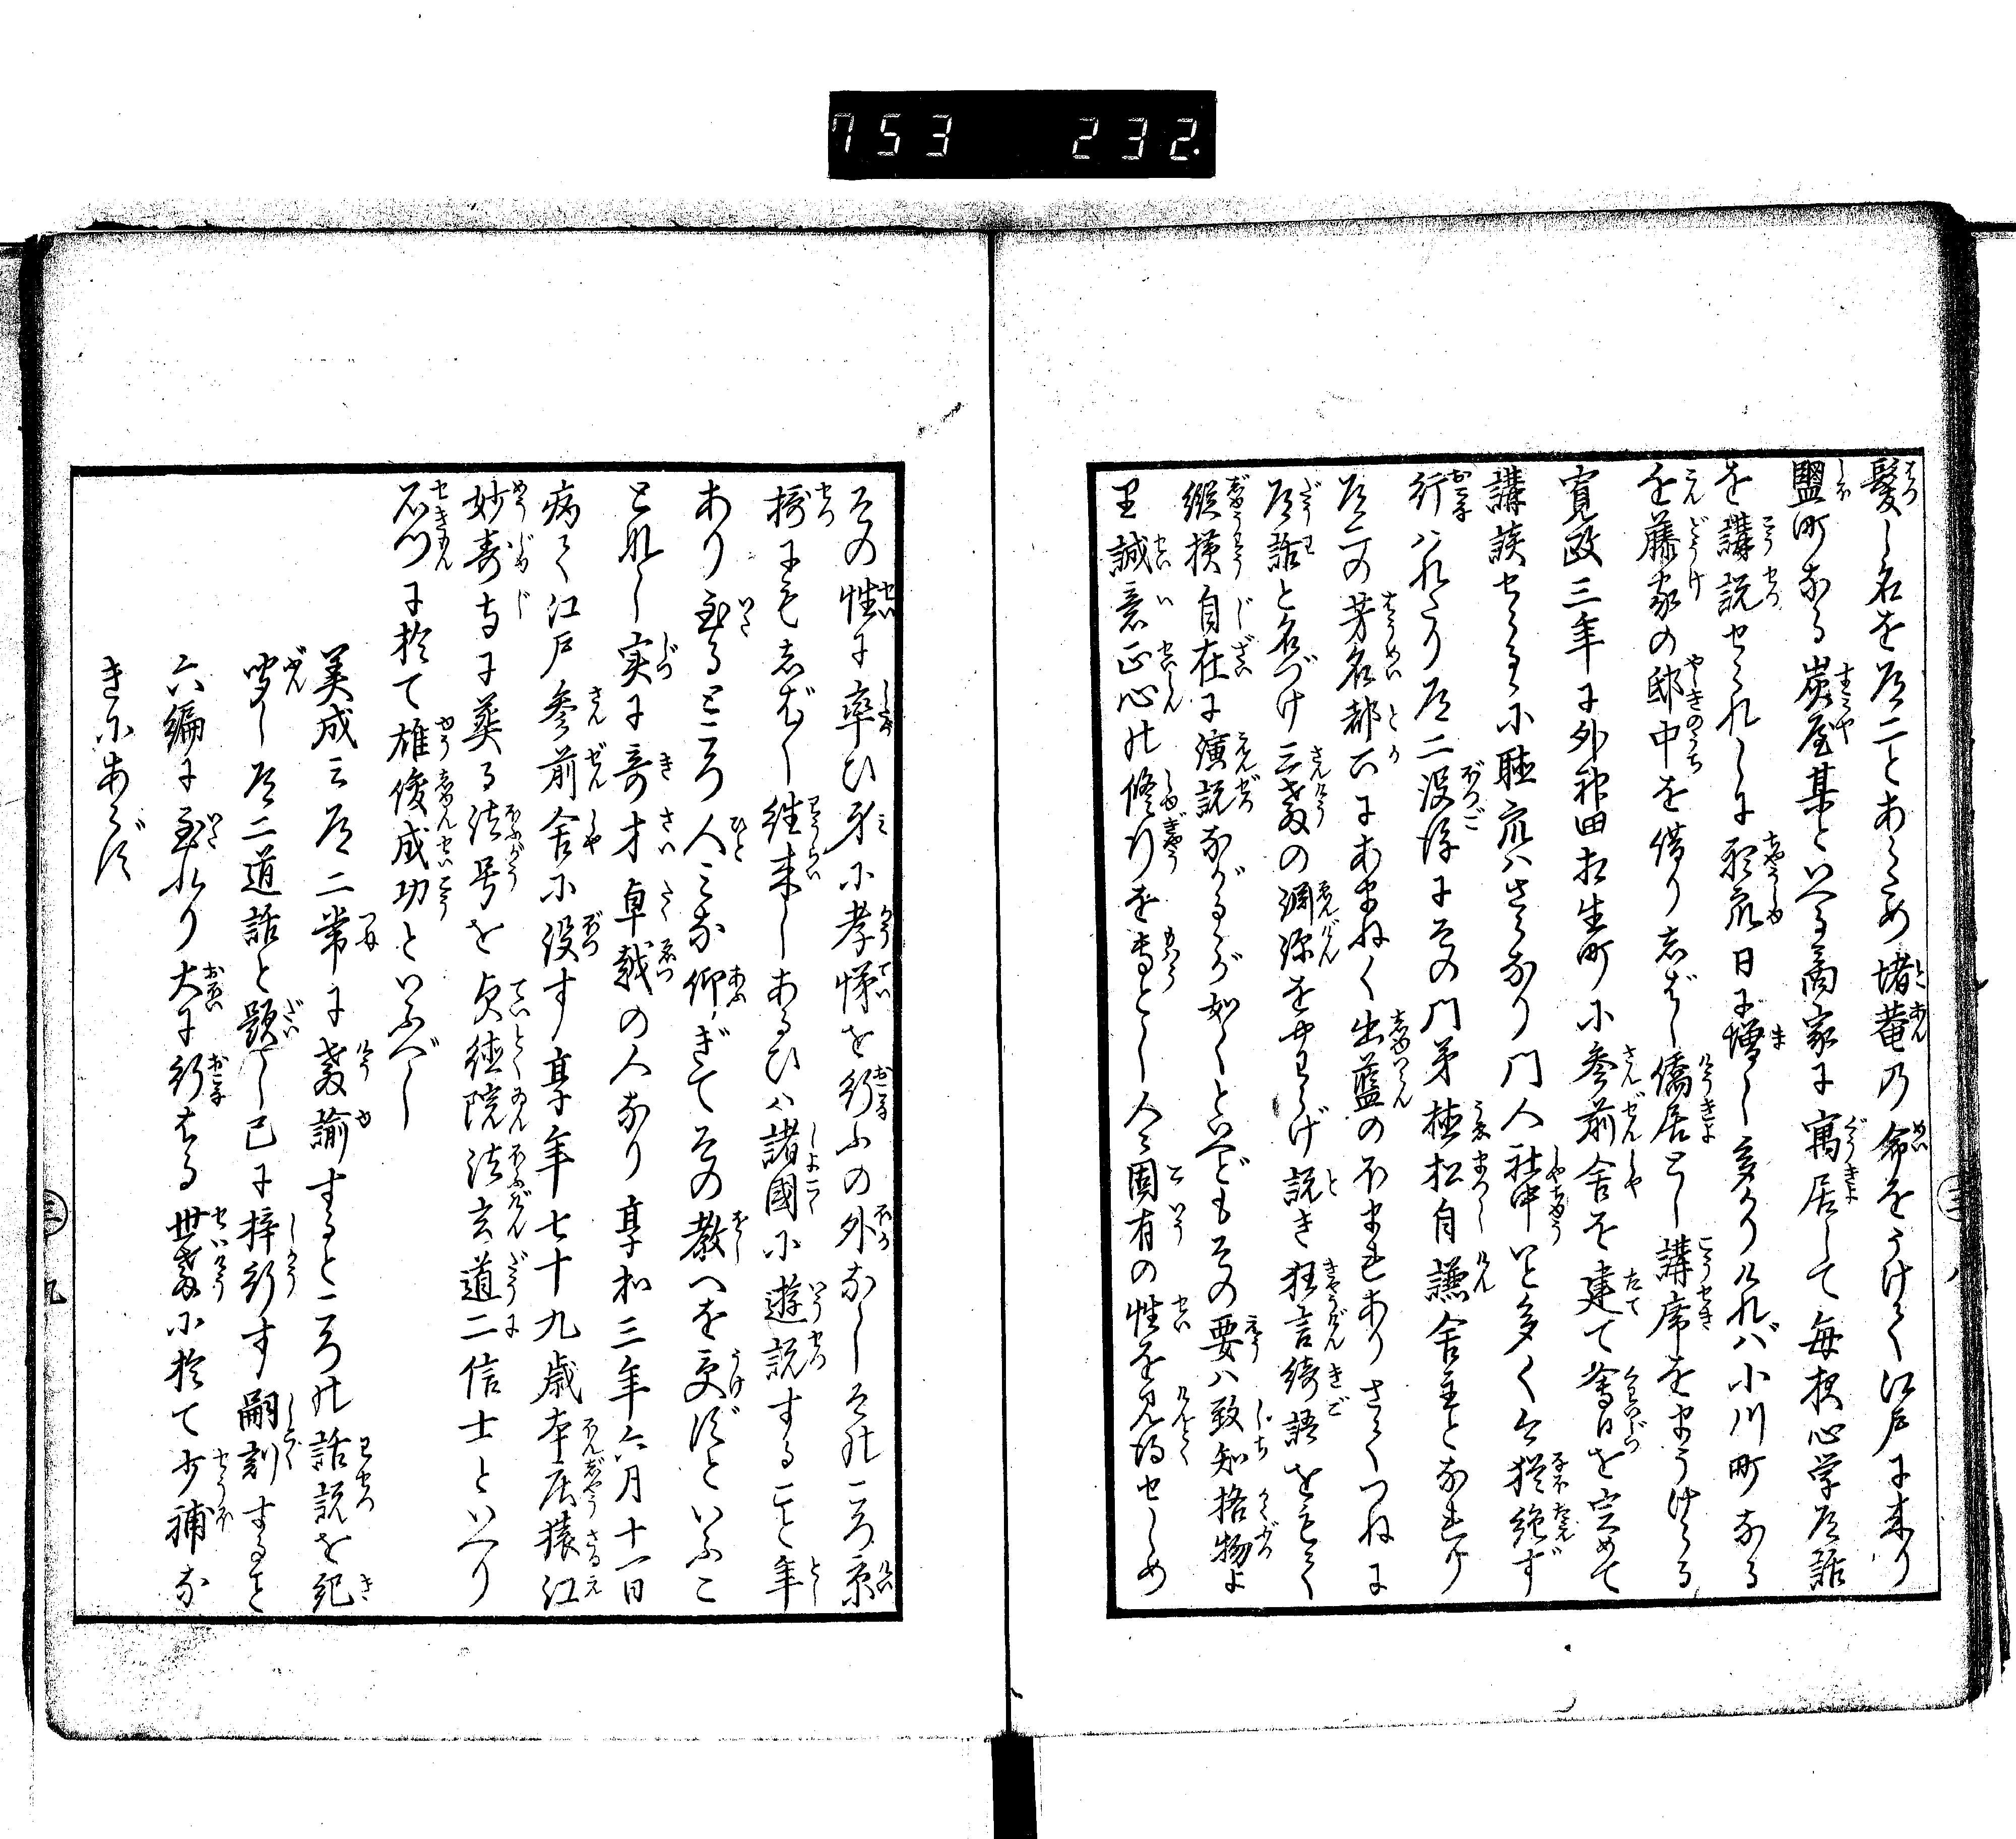 753 232.
髪し名を道二とあらため堵菴乃命をうけて江戸に来り
鹽町なる炭屋某といへる商家に寓居して毎夜心学道話
を講説せられしに聴衆日に増し多かりければ小川町なる
を藤家の邸中を借りしばし僑居し講席をまうけらる
寛政三年に外神田相生町に参前舎を建て筈日を定めて
講談せらるゝに聴衆はさらなり門人社中いと多く今猶絶ず
行はれたり道二没後にその門弟植松自謙舎主となれり
道二の芳名都下にあまねく出藍のほまれありさてつねに
道話と名づけ三教の渕源をやわらげ説き狂言綺語をもて
縦横自在に演説ながるゝが如くといへどもその要は致知格物よ
り誠意正心の修行を専とし人々固有の性を見得せしめ
三 八
その性に率ひ身に孝悌を行ふの外なしそのころ京
摂にもしばしば往来しあるひは諸國に遊説すること年
あり至るところ人みな仰ぎてその教へを受ずといふこ
となし実に奇才卓越の人なり享和三年六月十一日
病て江戸参前舎に没す享年七十九歳本庄猿江
妙寿寺に葬る法号を貞徳院法玄道二信士といへり
石門に於て雄俊成功といふべし
美成云道二常に教諭するところの話説を紀
聞し道二道話と題し已に梓行す嗣刻すること
六編に至れり大に行はる世教に於て少補な
きにあらず
三 九